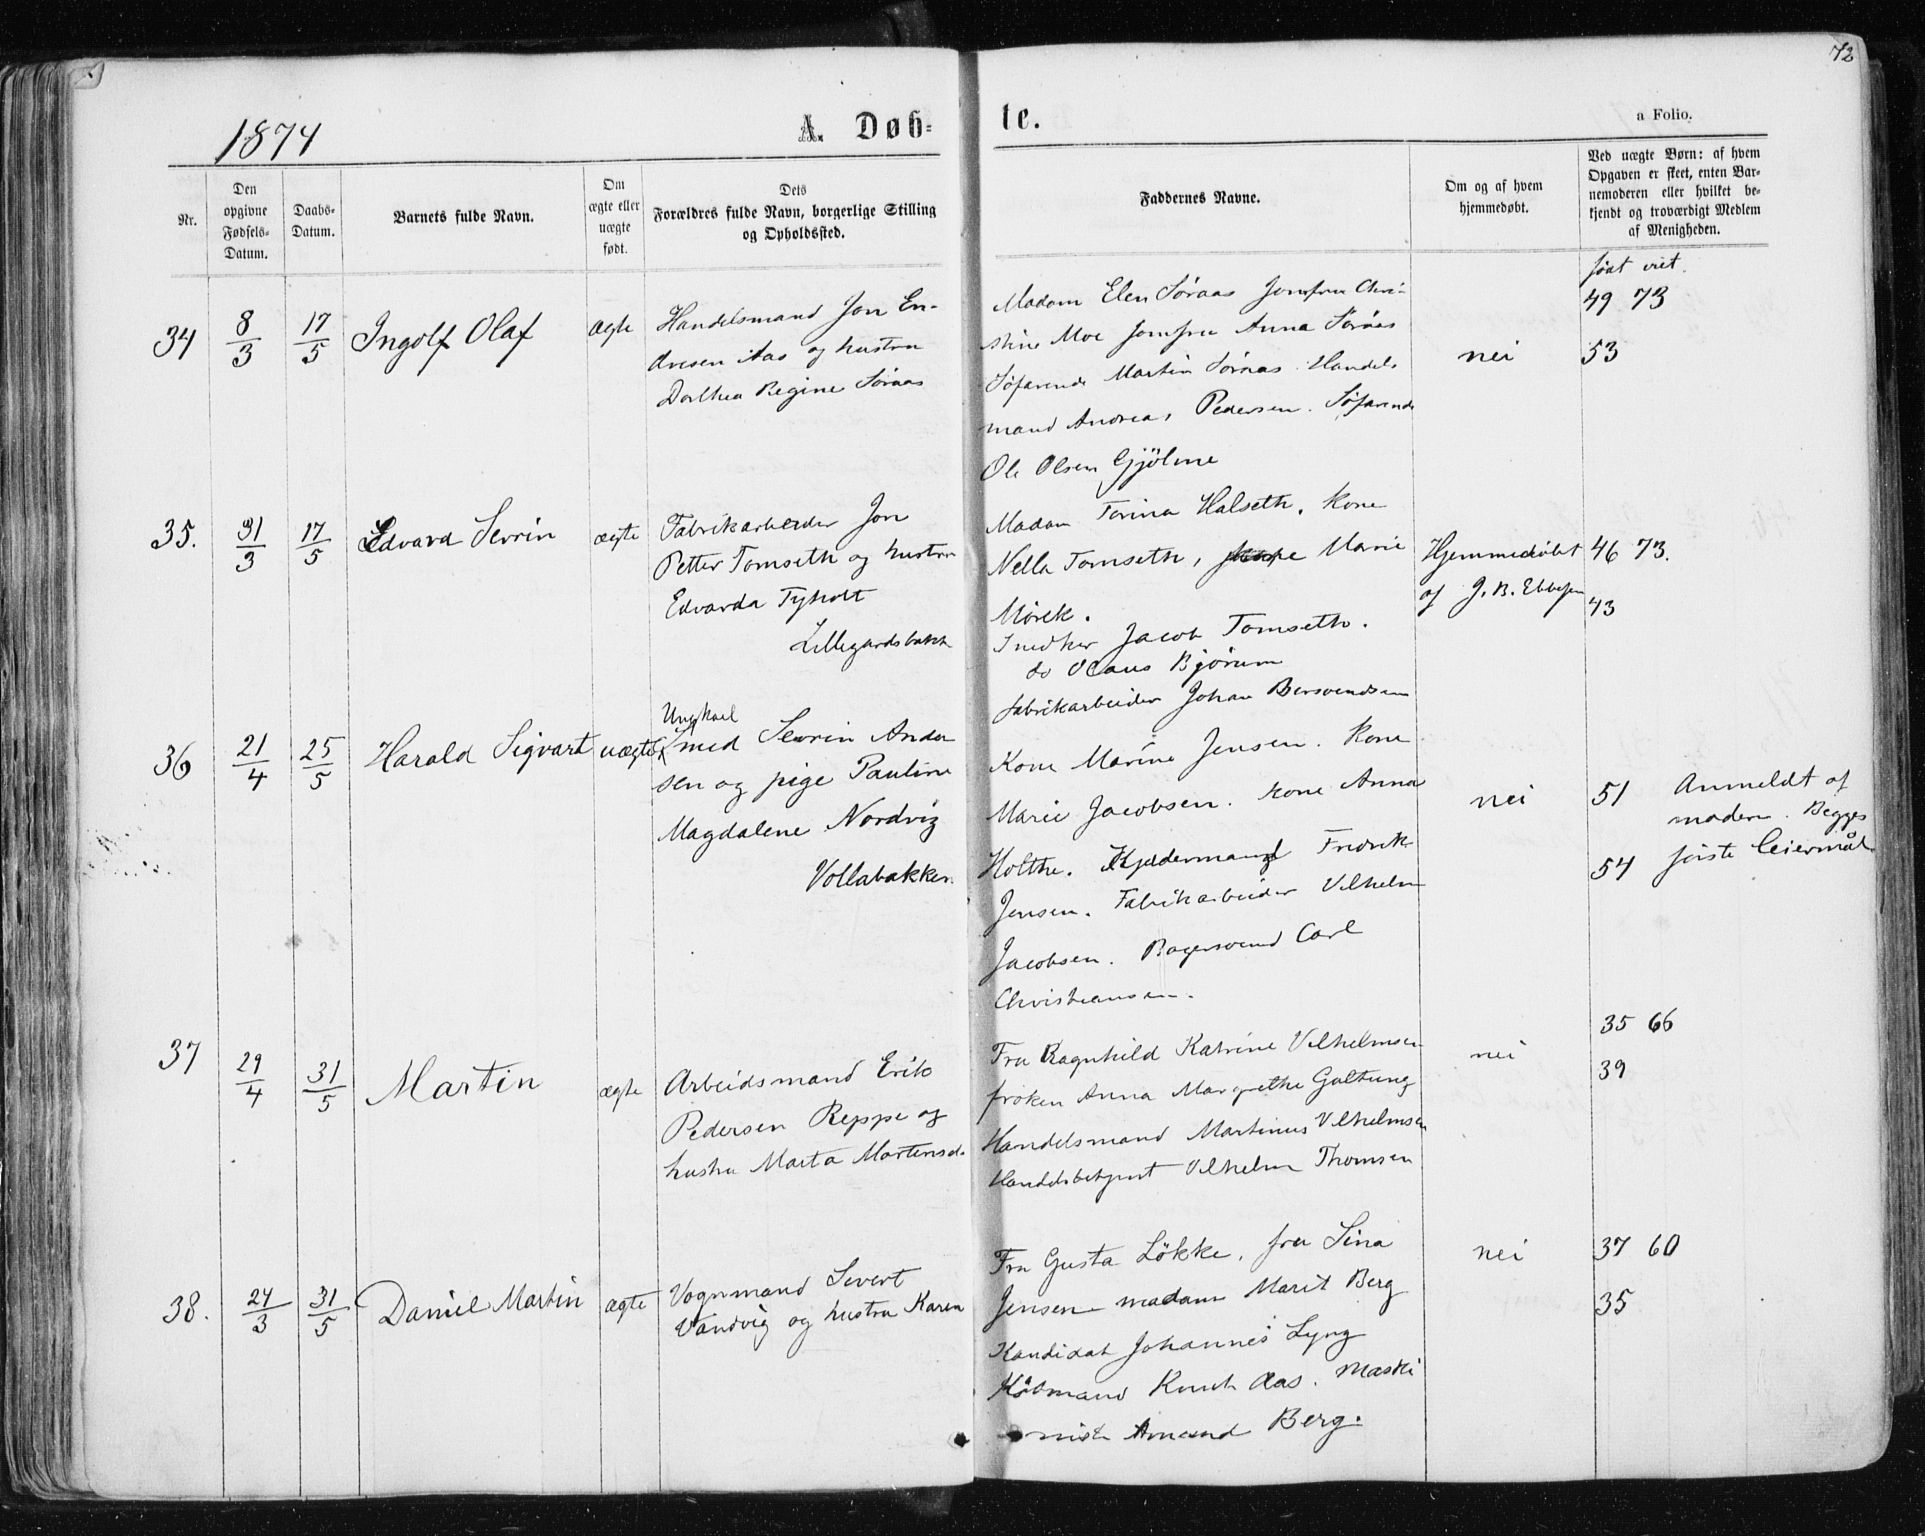 72
1874
A. Døb-
te.
a Folio.
Nr.
Den opgivne Fødsels-Datum.
Daabs-Datum.
Barnets fulde Navn.
Om ægte eller uægte født.
Dets Forældres fulde Navn, borgerlige Stilling og Opholdssted.
Faddernes Navne.
Om og af hvem hjemmedøbt.
Ved uægte Børn: af hvem Opgaven er skeet, enten Barnemoderen eller hvilket bekjendt og troværdigt Medlem af Menigheden.
34
8/3
17/5
Ingolf Olaf
ægte
Handelsmand Jon En-
dresen Aas og hustru
Dorthea Regine Søraas
Madam Elen Søraas Jomfru Chri-
stine Moe Jomfru Anna Søraas
Søfarende Martin Søraas. Handels
mand Andreas Pedersen. Søfarende
Ole Olsen Gjölme
nei
født viet.
49 73
53
35.
31/3
17/5
Edvard Sevrin
ægte
Fabrikarbeider Jon
Petter Tomseth og hustru
Edvarda Tyholt
Lillegardsbakk
Madam Torina Halseth. Kone
Nella Tomseth, Marie
Mörck.
Snedker Jacob Tomseth.
do Olaus Bjørum
fabrikarbeider Johan Bersvendsen
Hjemmedøbt
af J. B. Ebbesen
46 73.
43
36
21/4
25/5
Harald Sigvart
uægte
Ungkarl
Smed Sevrin Ander
sen og pige Pauline
Magdalene Nordvig
Vollabakken
Kone Marine Jensen. Kone
Marie Jacobsen. kone Anna
Holthe. Fredrik
Jensen. Fabrikarbeider Vilhelm
Jacobsen. Bagersvend Carl
Christiansen.
nei
51
54
Anmeldt af
moderen. Begges
første leiermål
37
29/4
31/5
Martin
ægte
Arbeidsmand Erik
Pedersen Reppe og
hustru Marta Martensd.
Fru Ragnhild Katrine Vilhelmsen
frøken Anna Margrethe Galtung
Handelsmand Martinus Vilhelmsen
Handelsbetjent Vilhelm Thomsen
nei
35 66
39
38.
24/3
31/5
Daniel Martin
ægte
Vognmand Sivert
Vandvig og hustru Karen
Fru Gusta Lökke, fru Sina
Jensen madam Marit Berg
Kandidat Johannes Lyng
Købmand Knut Aas. Maski
nist Amund Berg.
nei
37 60
35